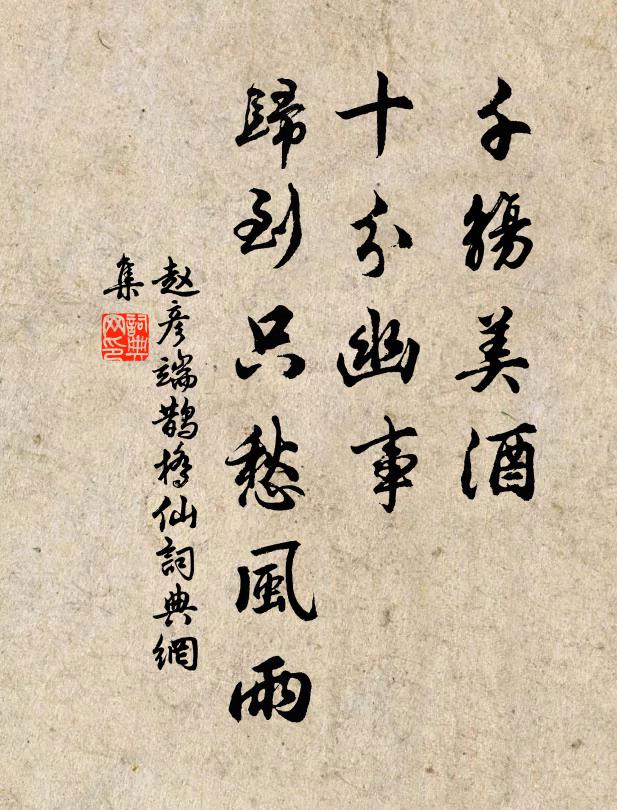 千觴美酒
十分幽事
歸到只愁風雨
赵彦端鵲橋仙詞典網
集
詞典
网印